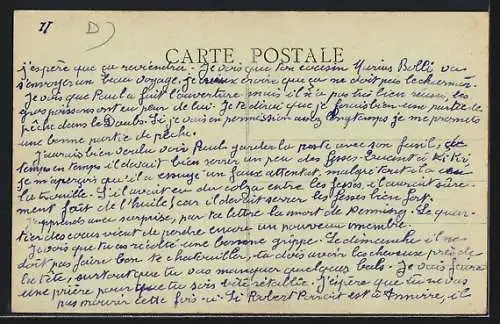 II D
CARTE POSTALE
j'espère que ça reviendra. Je vois que ton cousin Marius Bolli va
s'envoyer un beau voyage, je veux croire que ça ne doit pas le charmer.
Je vois que Paul a fait l'ouverture mais il n'a pas très bien réussi, les
gros poissons ont eu peur de lui. Je te dirai que je ferais bien une partie de
pêche dans le Doubs. Si je vais en permission au printemps je me promets
une bonne partie de pêche.
J'aurais bien voulu voir Paul garder la poste avec son fusil, de
temps en temps il devait bien serrer un peu des fesses. Quant à Kiki,
je m'aperçois qu'il a essuyé un faux attentat, malgré tout il a eu
la trouille. S'il avait eu du colza entre les fesses, il aurait sûre-
ment fait de l'huile car il devait serrer les fesses bien fort.
J'apprends avec surprise, par ta lettre la mort de . Le quar-
tier des vient de perdre encore un nouveau membre.
Je vois que tu as récolté une bonne grippe. Le dimanche il ne
doit pas faire bon te chatouiller, tu dois avoir les cheveux près de
la tête, surtout que tu vas manquer quelques bals. Je vais faire
une prière pour que tu sois vite rétablie. J'espère que tu ne vas
pas mourir cette fois-ci. Si Robert est à , il